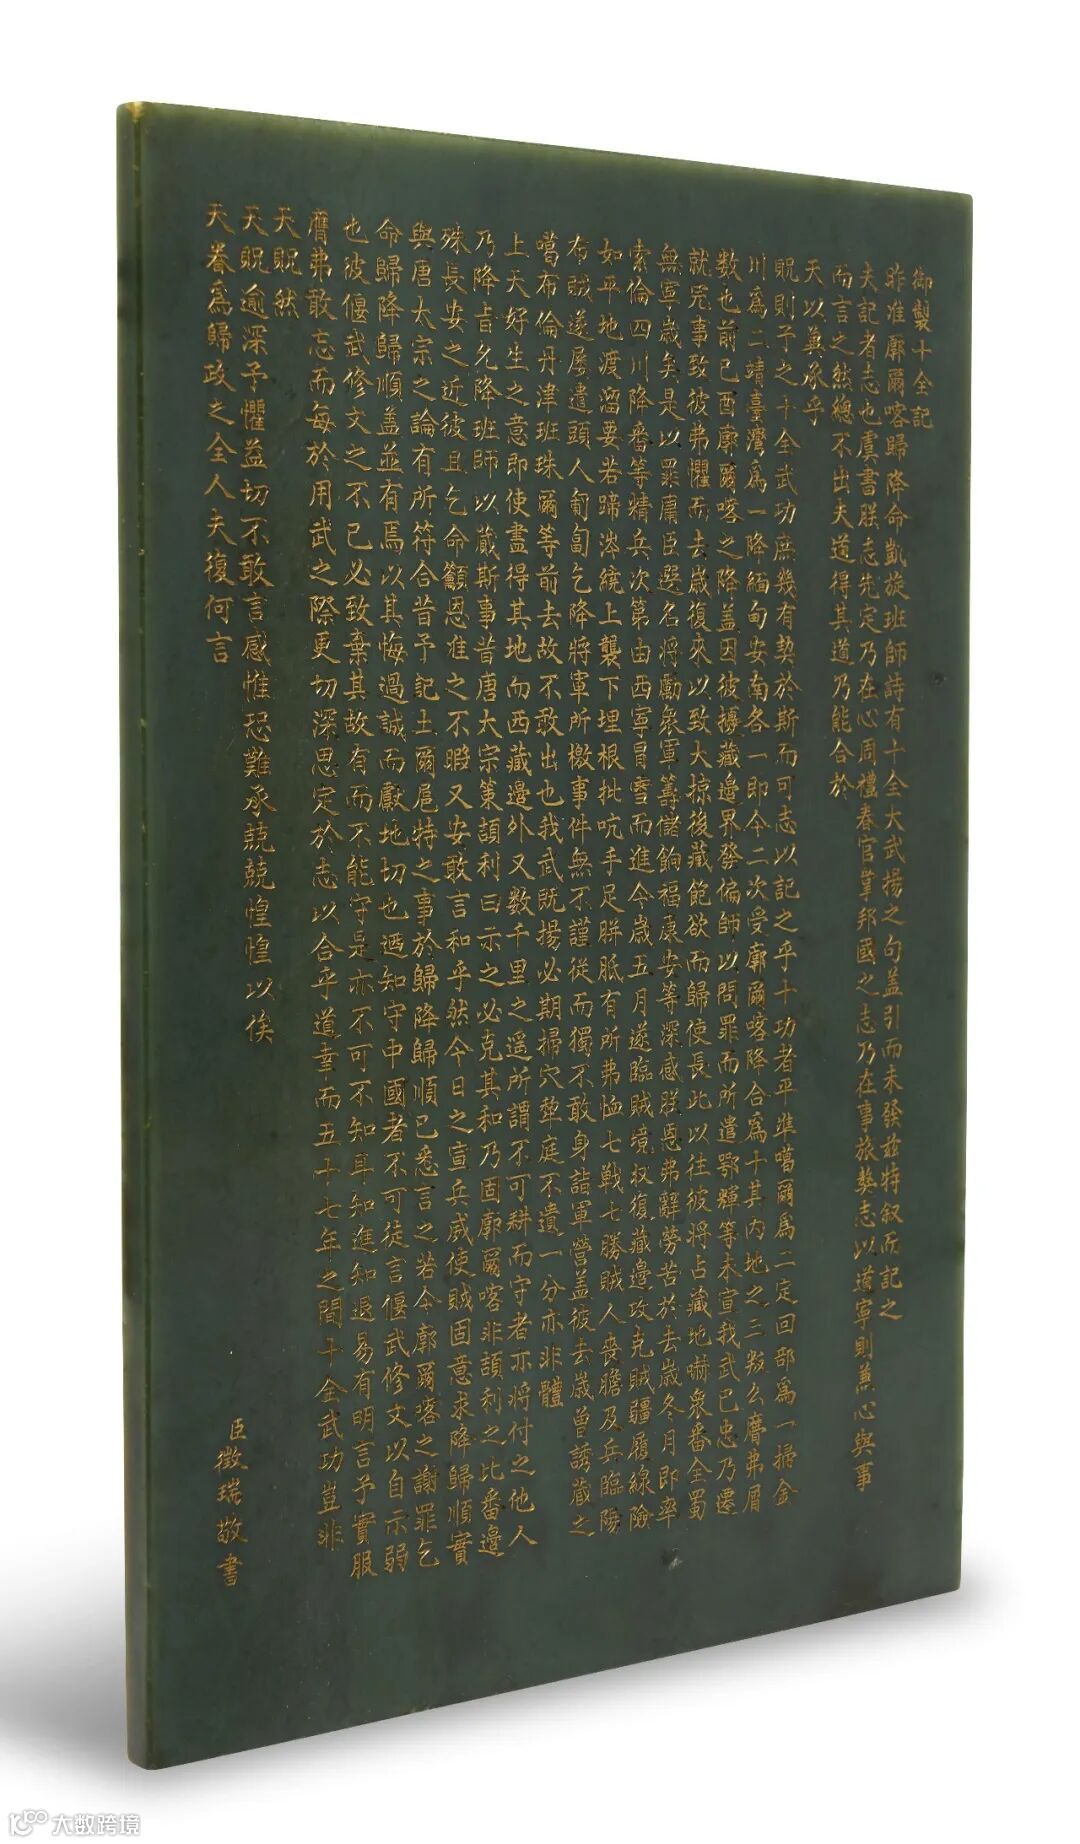 御製十全記
昨准廓爾喀歸降命凱旋班師詩有十全大武揚之句蓋引而未發茲特叙而記之
夫記者志也虞書朕志先定乃在心周禮春官掌邦國之志乃在事旅獒志以道寧則兼心與事
而言之然總不出夫道得其道乃能合於
天以冀承乎
貺則予之十全武功庶幾有契於斯而可志以記之乎十功者平準噶爾為二定回部為一掃金
川為二靖臺灣為一降緬甸安南各一即今二次受廓爾喀降合為十其內地之三叛么麼弗屑
數也前已酉廓爾喀之降蓋因彼擾藏邊界發偏師以問罪而所遣鄂輝等未宣我武巴忠乃遷
就完事致彼弗懼而去歲復來以致大掠後藏飽欲而歸使長此以往彼將占藏地嚇衆番全蜀
無寧歲矣是以罪庸臣選名將勵衆軍籌儲餉福康安等深感朕恩弗辭勞苦於去歲冬月即率
索倫四川降番等精兵次第由西寧冒雪而進今歲五月遂臨賊境收復藏邊攻克賊疆履線險
如平地渡溜要若蹄涔繞上襲下埋根批吭手足胼胝有所弗恤七戰七勝賊人喪膽及兵臨陽
布賊遂屢遣頭人匍匐乞降將軍所檄事件無不謹從而獨不敢身詣軍營蓋彼去歲曾誘藏之
噶布倫丹津班珠爾等前去故不敢出也我武既揚必期掃穴犂庭不遺一分亦非體
上天好生之意即使盡得其地而西藏邊外又數千里之遥所謂不可耕而守者亦將付之他人
乃降旨允降班師以蕆斯事昔唐太宗策頡利曰示之必克其和乃固廓爾喀非頡利之比番邊
殊長安之近彼且乞命籲恩准之不暇又安敢言和乎然今日之宣兵威使賊固意求降歸順實
與唐太宗之論有所符合昔予記土爾扈特之事於歸降歸順已悉言之若今廓爾喀之謝罪乞
命歸降歸順蓋並有焉以其悔過誠而獻地切也遐知守中國者不可徒言偃武修文以自示弱
也彼偃武修文之不已必致棄其故有而不能守是亦不可不知耳知進知退易有明言予實服
膺弗敢忘而每於用武之際更切深思定於志以合乎道幸而五十七年之間十全武功豈非
天貺然
天貺逾深予懼益切不敢言感惟恐難承兢兢惶惶以俟
天眷為歸政之全人夫復何言
臣徵瑞敬書
大数跨境